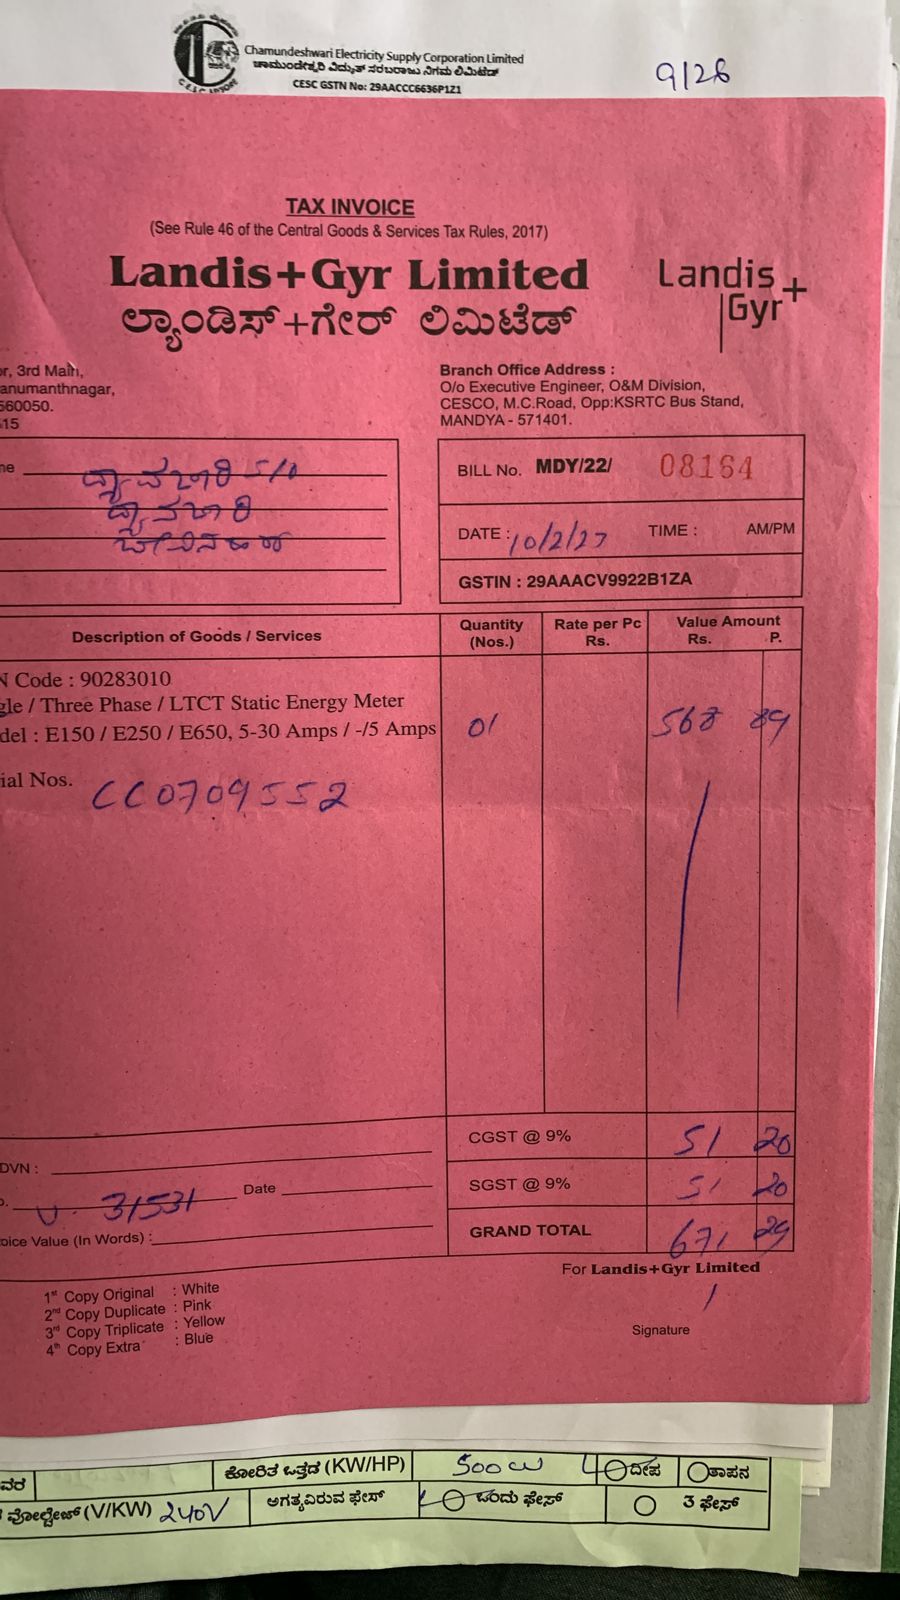 Chamundeshwari Electricity Supply Corporation Limited
ಚಾಮುಂಡೇಶ್ವರಿ ವಿದ್ಯುತ್ ಸರಬರಾಜು ನಿಗಮ ಲಿಮಿಟೆಡ್
CESC GSTN No: 29AACCC6636P1Z1
9/26
TAX INVOICE
(See Rule 46 of the Central Goods & Services Tax Rules, 2017)
Landis+Gyr Limited
Landis
Gyr+
ಲ್ಯಾಂಡಿಸ್+ಗೇರ್ ಲಿಮಿಟೆಡ್
or, 3rd Main,
anumanthnagar,
560050.
15
Branch Office Address :
O/o Executive Engineer, O&M Division,
CESCO, M.C.Road, Opp:KSRTC Bus Stand,
MANDYA - 571401.
me
S/o
BILL No. MDY/22/ 08164
DATE : 10/2/23 TIME : AM/PM
GSTIN : 29AAACV9922B1ZA
Description of Goods / Services Quantity (Nos.) Rate per Pc Rs. Value Amount Rs. P.
N Code : 90283010
gle / Three Phase / LTCT Static Energy Meter
del : E150 / E250 / E650, 5-30 Amps / -/5 Amps 01 568 89
ial Nos. CC0709552
CGST @ 9% 51 20
DVN :
SGST @ 9% 51 20
o. 31531 Date
GRAND TOTAL 671 29
oice Value (In Words) :
For Landis+Gyr Limited
1st Copy Original : White
2nd Copy Duplicate : Pink
3rd Copy Triplicate : Yellow
4th Copy Extra : Blue
Signature
ವರ ಕೋರಿತ ಒತ್ತಡ (KW/HP) 500 W ದೀಪ ತಾಪನ
ವೋಲ್ಟೇಜ್ (V/KW) 240V ಅಗತ್ಯವಿರುವ ಫೇಸ್ ಒಂದು ಫೇಸ್ 3 ಫೇಸ್